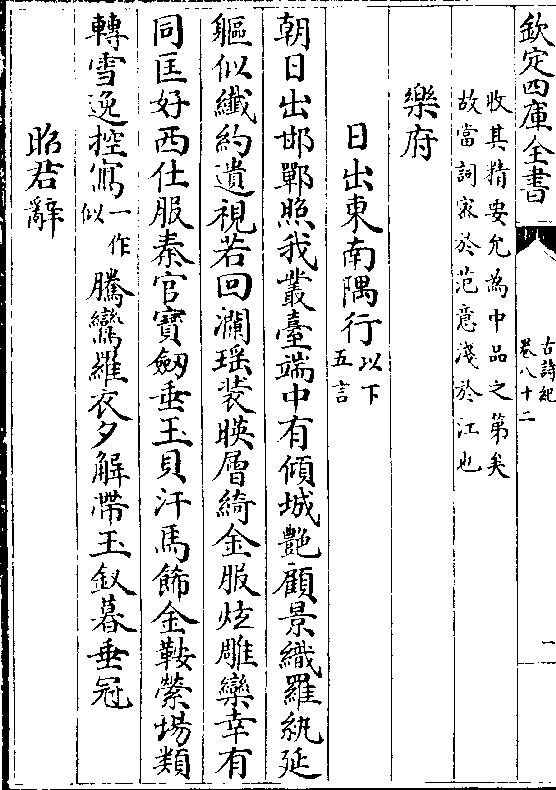 欽定四庫全書
古詩紀
卷八十二
一
收其精要允為中品之第矣
故當詞寂於范意淺於江也
樂府
日出東南隅行以下
五言
朝日出邯鄲照我叢臺端中有傾城艷顧景織羅紈延
軀似纖約遺視若回瀾瑶装暎層綺金服炫雕欒幸有
同匡好西仕服秦官寶劒垂玉貝汗馬飾金鞍縈塲類
轉雪逸控寫一作
似騰鸞羅衣夕解帶玉釵暮垂冠
昭君辭